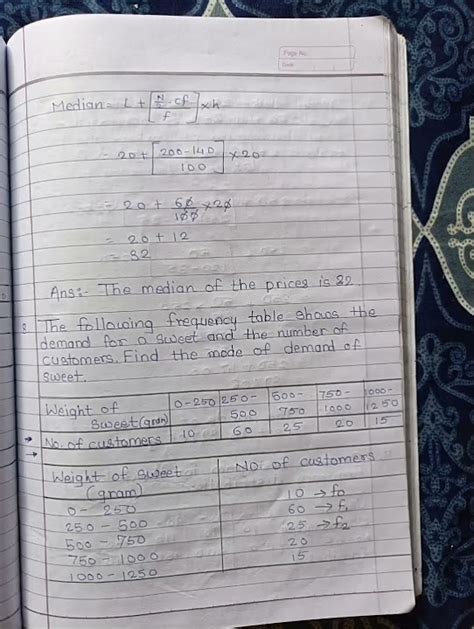 Page No.
Date
Median = L + [N/2 - cf / f] x h
= 20 + [200-140 / 100] x 20
= 20 + 60/100 x 20
= 20 + 12
= 32
Ans:- The median of the prices is 32
The following frequency table shows the
demand for a sweet and the number of
customers. Find the mode of demand of
sweet.
Weight of sweet (gram) 0-250 250-500 500-750 750-1000 1000-1250
→ No. of customers 10 60 25 20 15
→
Weight of sweet (gram) No. of customers
0 - 250 10 → f0
250 - 500 60 → f1
500 - 750 25 → f2
750 - 1000 20
1000 - 1250 15